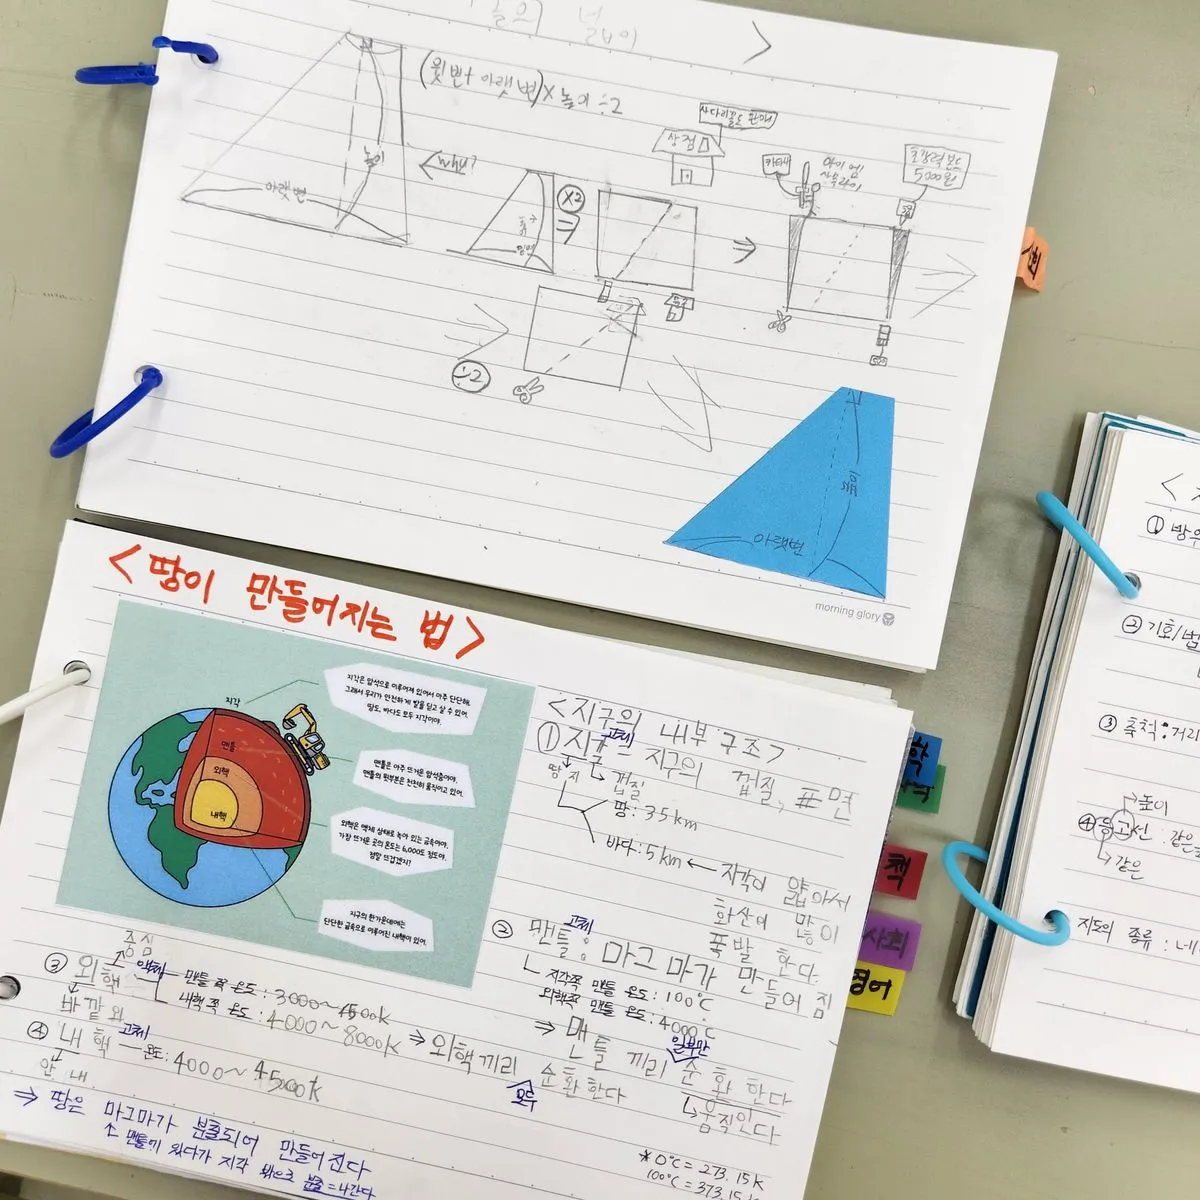 넓이
(윗변+아랫변)×높이÷2
사다리꼴도 환영!
상점
카타나
아이 엠
사무라이
초강력본드
5000원
why?
높이
아랫변
×2
÷2
사회
높이
아랫변
morning glory
<땅이 만들어지는 법>
지각은 암석으로 이루어져 있어서 아주 단단해.
그래서 우리가 안전하게 발을 딛고 살 수 있어.
땅도, 바다도 모두 지각이야.
지각
맨틀
외핵
내핵
맨틀은 아주 뜨거운 암석층이야.
맨틀의 윗부분은 천천히 움직이고 있어.
외핵은 액체 상태로 녹아 있는 금속이야.
가장 뜨거운 곳의 온도는 6,000도 정도야.
정말 뜨겁겠지?
지구의 한가운데에는
단단한 금속으로 이루어진 내핵이 있어.
<지구의 내부 구조>
고체
① 지각 지구의 껍질, 표면
땅 지 껍질
땅: 35km
바다: 5km ← 지각이 얇아서
화산이 많이
폭발 한다.
고체
② 맨틀: 마그마가 만들어 짐
지각쪽 맨틀 온도: 100℃
외핵쪽 맨틀 온도: 4000℃
⇒ 맨틀 끼리 일부만 순환 한다
움직인다
중심
③ 외핵 액체
바깥 외
맨틀 쪽 온도: 3000~4500k
내핵 쪽 온도: 4000~8000k
⇒ 외핵끼리 모두 순환한다
④ 내핵 고체 온도: 4000~4500k
안 내
⇒ 땅은 마그마가 분출되어 만들어진다
↑ 맨틀에 있다가 지각 밖으로 분출=나간다
*0℃=273.15k
100℃=373.15k
책
사회
영어
② 기호/
③ 축척: 거리
높이
④ 등고선: 같은
같은
지도의 종류: 네